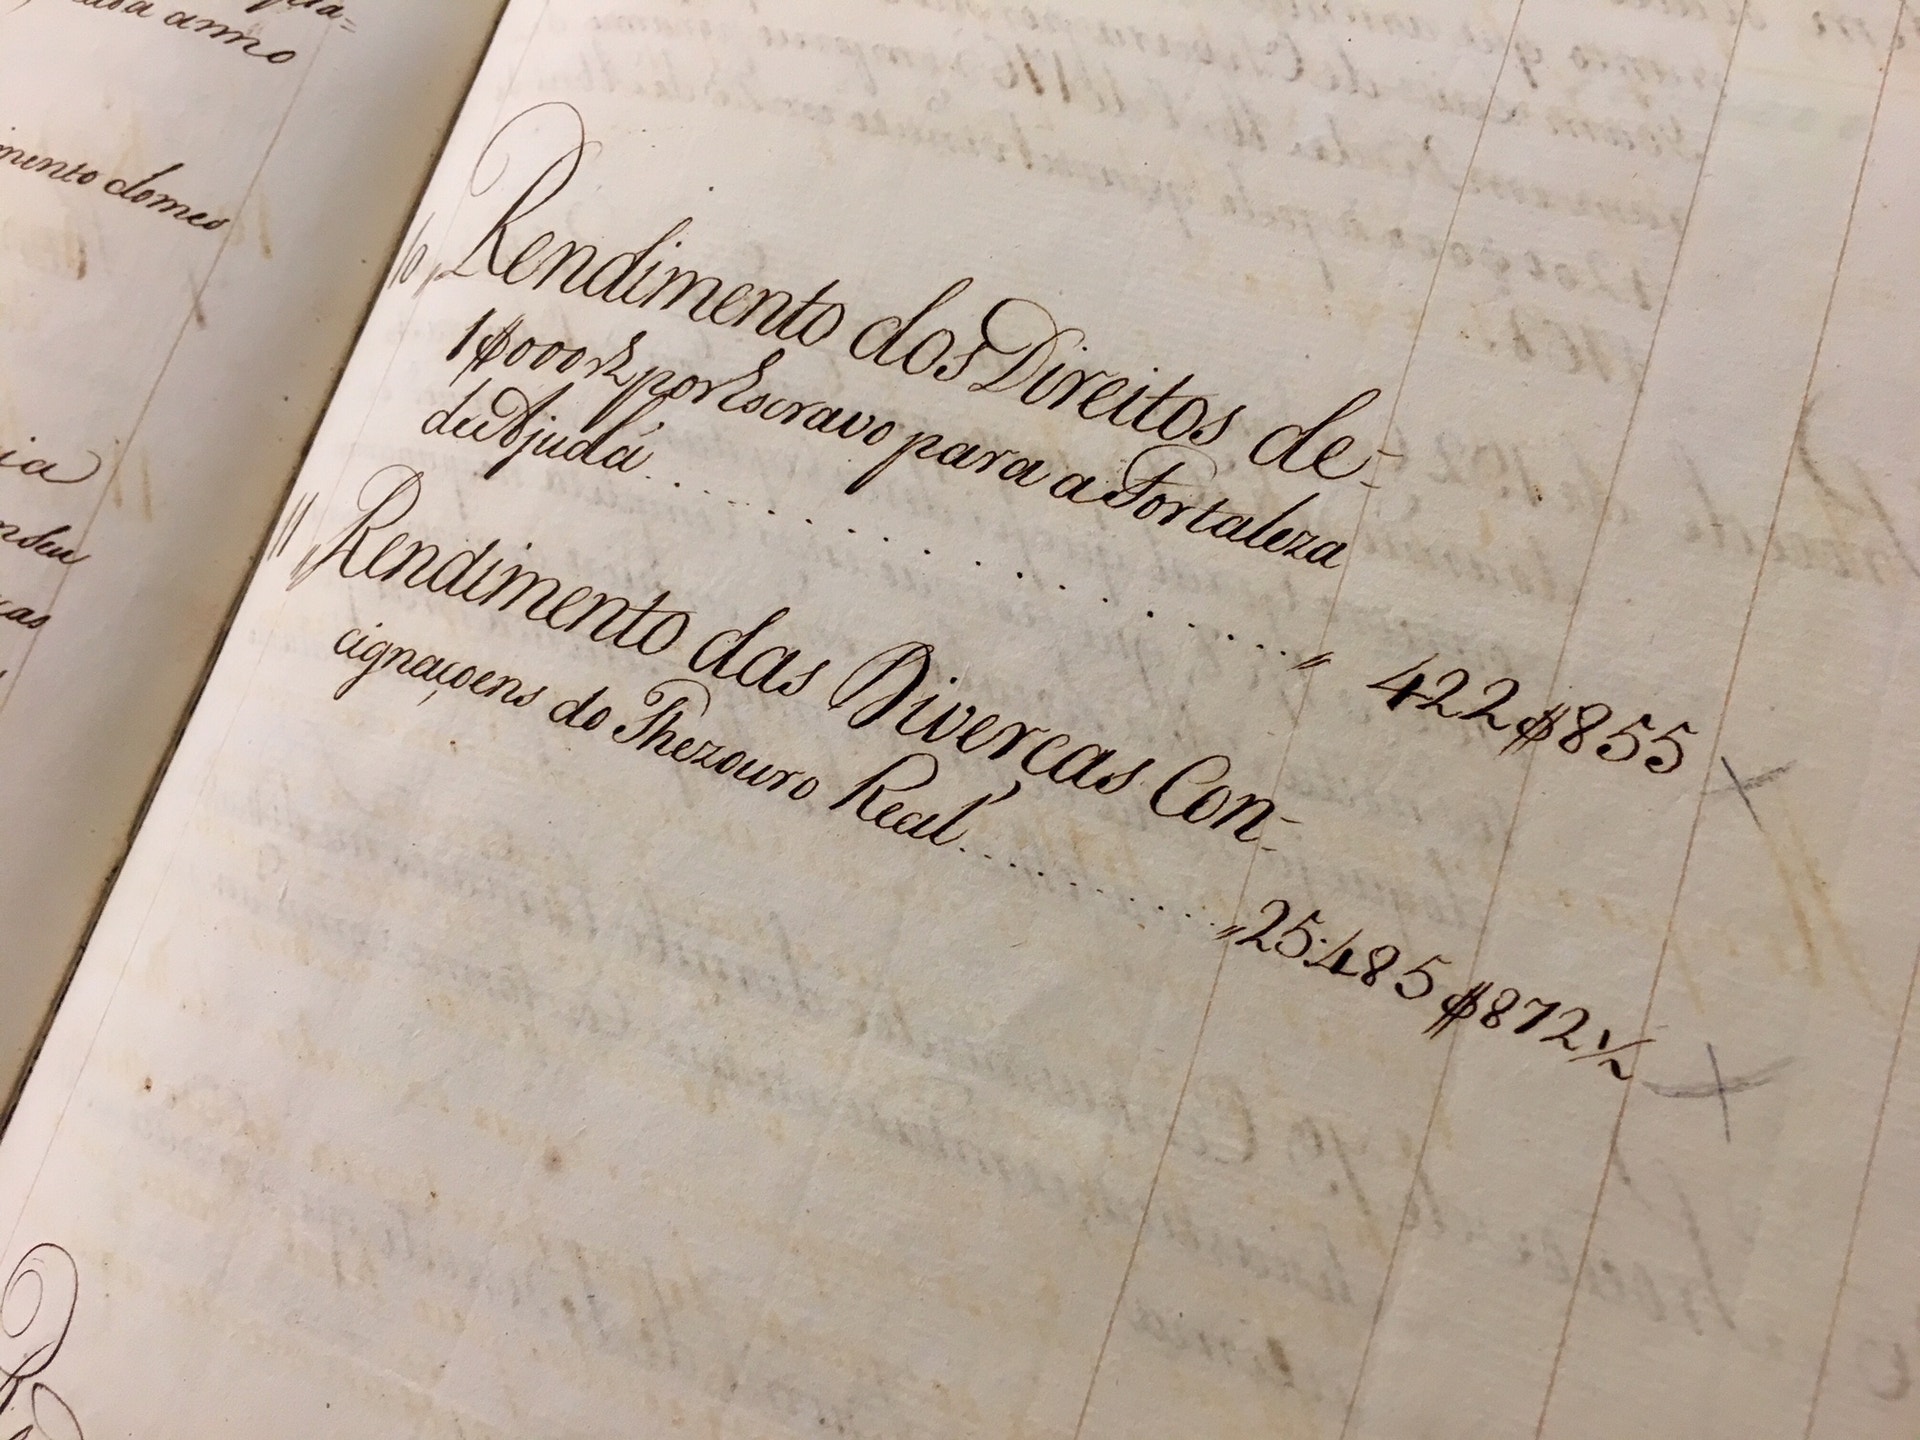 cada anno
mento domes
10 „ Rendimento dos Direitos de=
1$000 r.s por Escravo para a Fortaleza
de Ajudá . . . . . . . . . . . . . . „ 422$855
11 „ Rendimento das Divercas Con=
cignaçoens do Thezouro Real . . . . . . . . „ 25:485$872 1/2